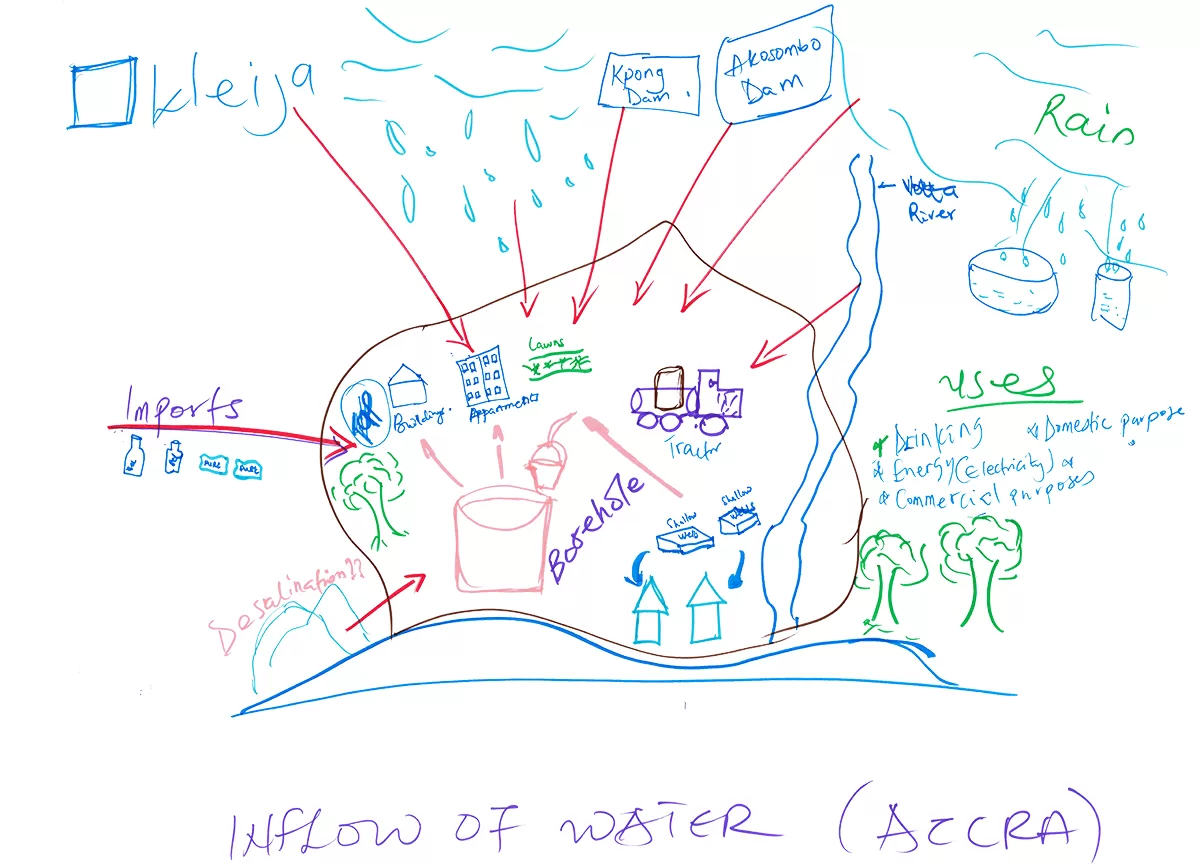 Kleija
Kpong
Dam.
Akosombo
Dam
Rain
Volta
River
Imports
PURE
PURE
Building.
Appartments
Lawns
Tractor
Borehole
Shallow
Shallow
wells
Desalination??
uses
* Drinking
* Domestic purpose
* Energy (Electricity) *
* Commercial purposes
INFLOW OF WATER (ACCRA)